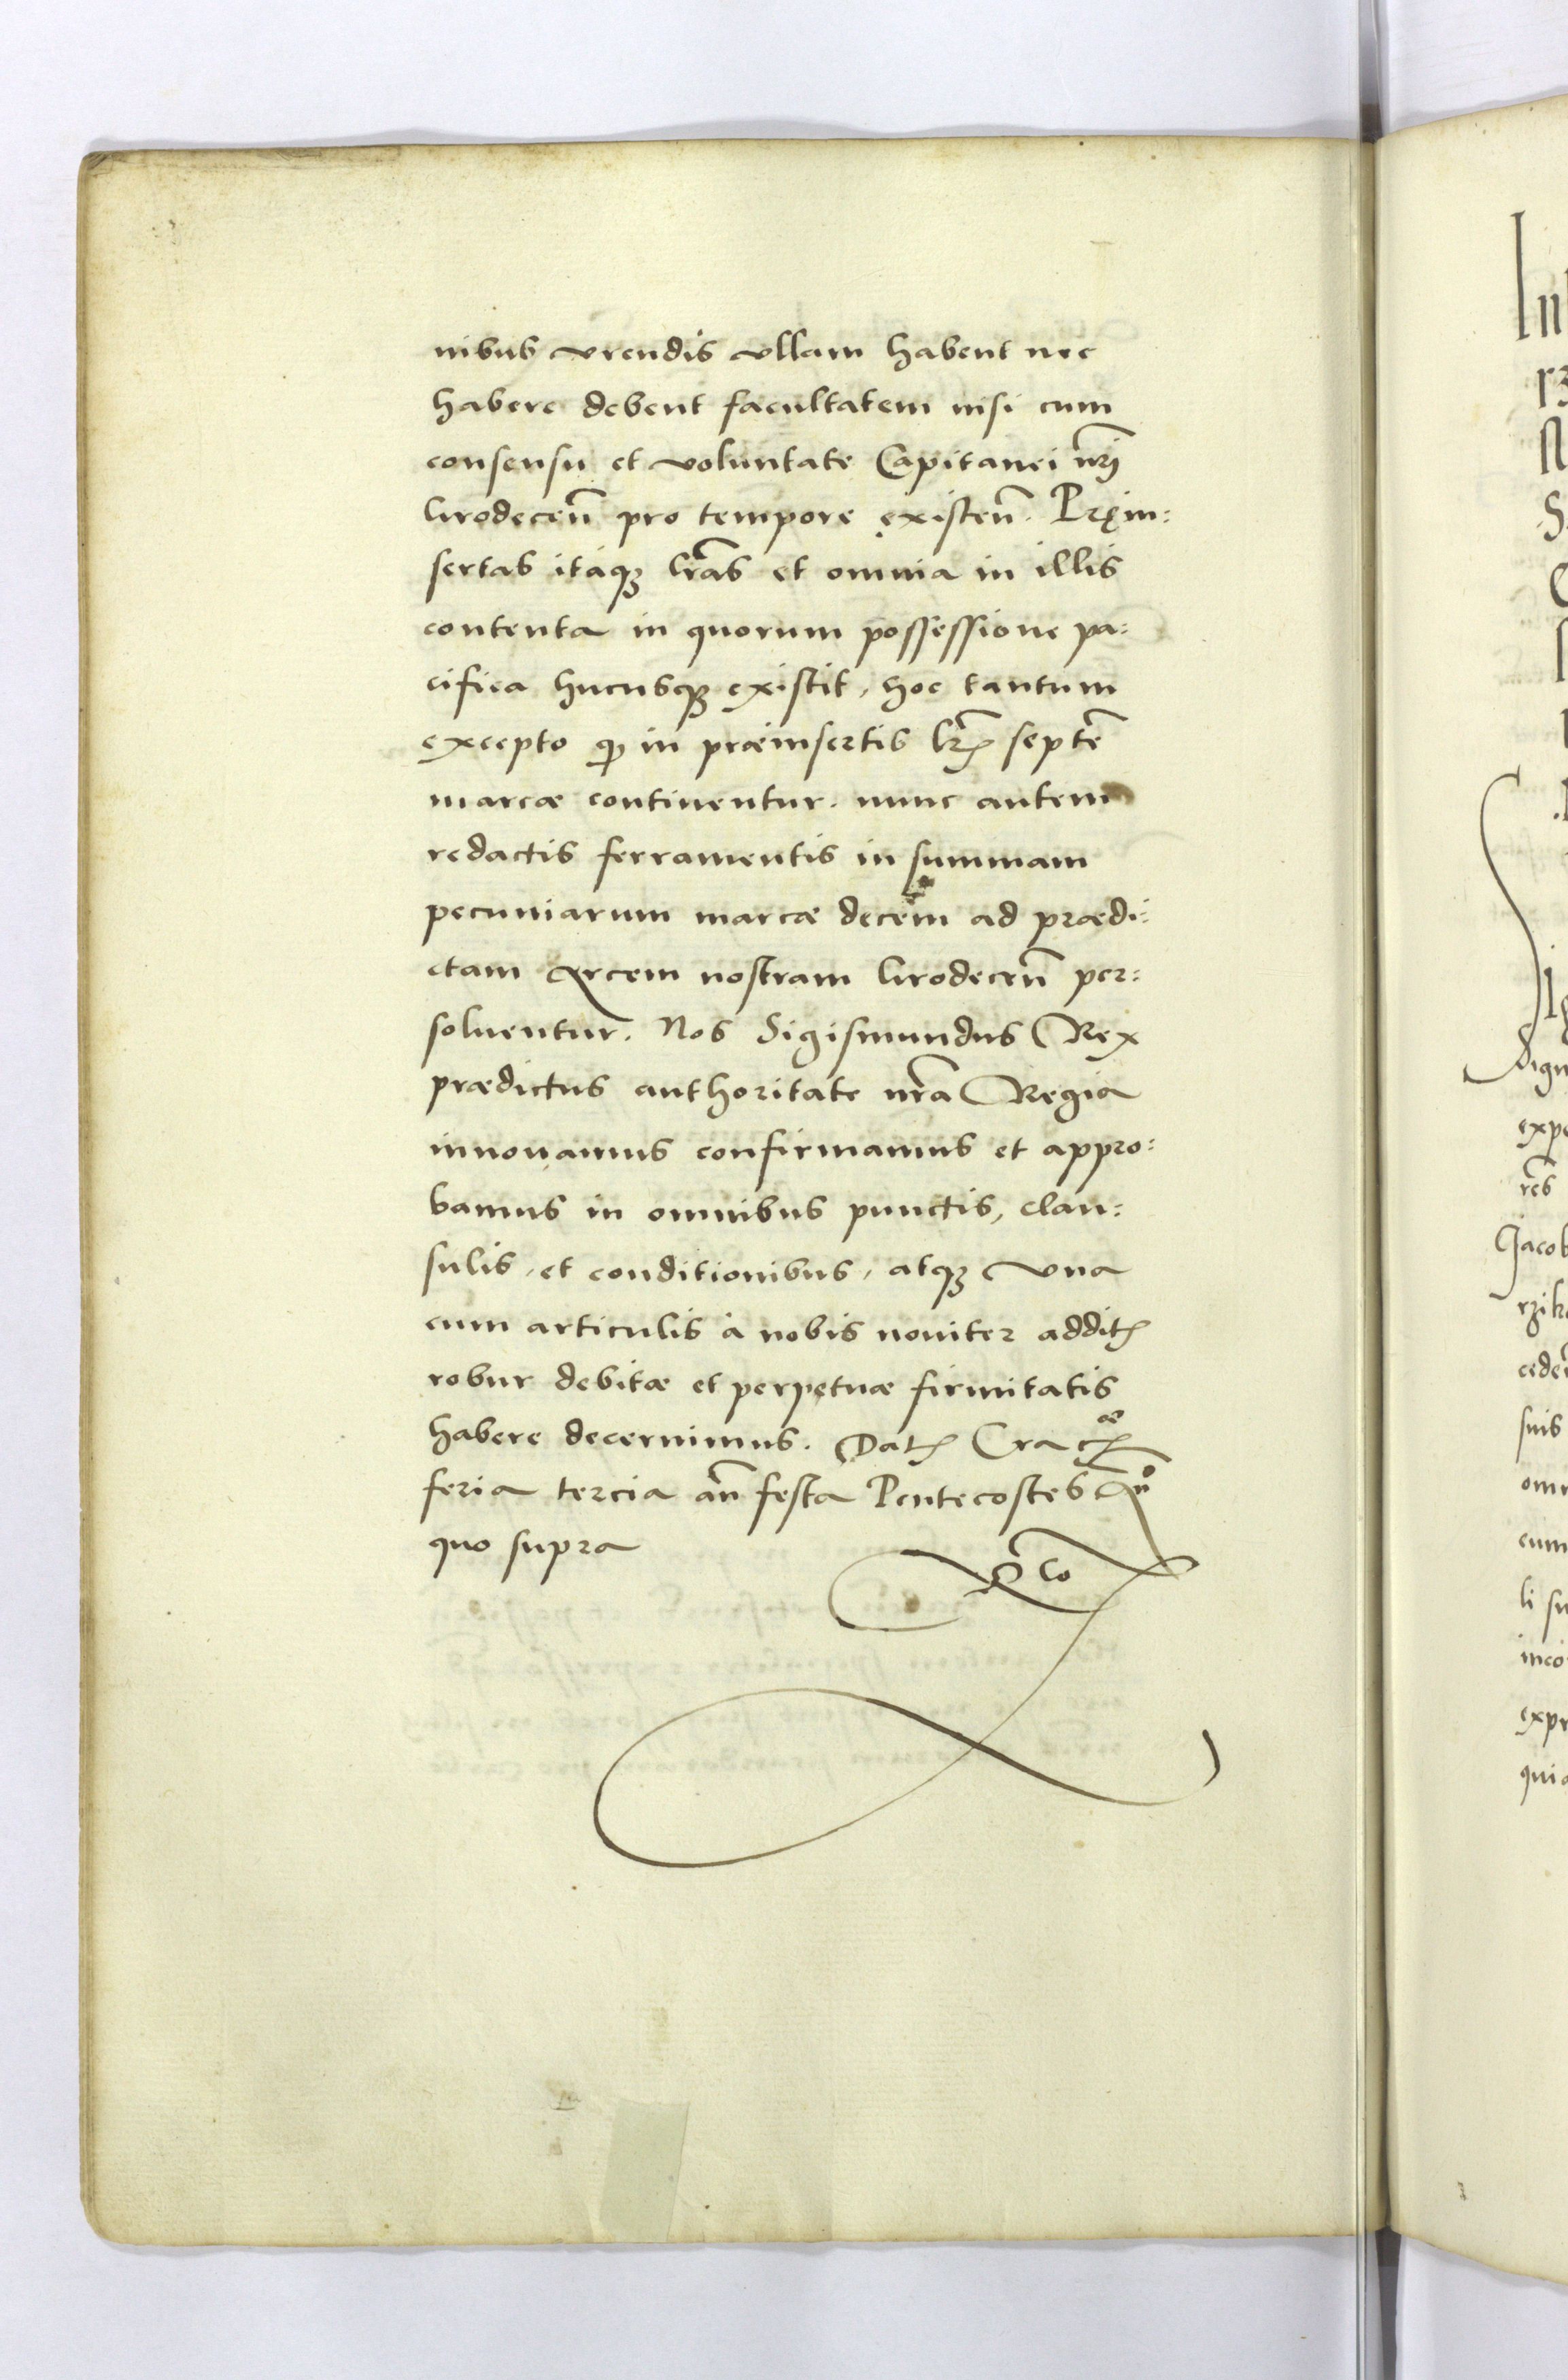 nibus vrendis vllam habent nec
habere debent facultatem nisi cum
consensu et voluntate Capitanei nr̃i
Grodeceñ pro tempore existeñ. Pręin:
sertas itaqꝫ lr̃as et omnia in illis
contenta in quorum possessione pa:
cifica hucusqꝫ existit, hoc tantum
excepto ꝙ in præinsertis lr̃ꝭ septẽ
marcæ continentur. nunc autem
redactis ferramentis in summam
pecuniarum marcæ decem ad prædi:
ctam Arcem nostram Grodeceñ per:
soluentur. Nos Sigismundus Rex
prædictus authoritate nr̃a Regia
innouamus confirmamus et appro:
bamus in omnibus punctis, clau:
sulis, et conditionibus, atqꝫ vna
cum articulis à nobis nouiter additꝭ
robur debitæ et perpetuæ firmitatis
habere decernimus. Datꝭ Cracꝭæ
feria tercia añ festa Pentecostes Añº
quo supra
In
rz
N
S
dign
expe
res
Jacob
rzik
cede
suis
omn
cum
li su
inco
expr
quia